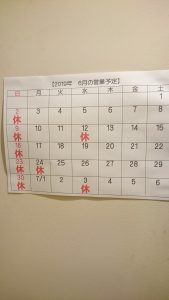 【2019年 6月の営業予定】
日 月 火 水 木 金 土
1
2 3 4 5 6 7 8
休
9 10 11 12 13 14 15
休 休
16 17 18 19 20 21 22
休
23 24 25 26 27 28 29
休 休
30 7/1 2 3 4 5 6
休 休